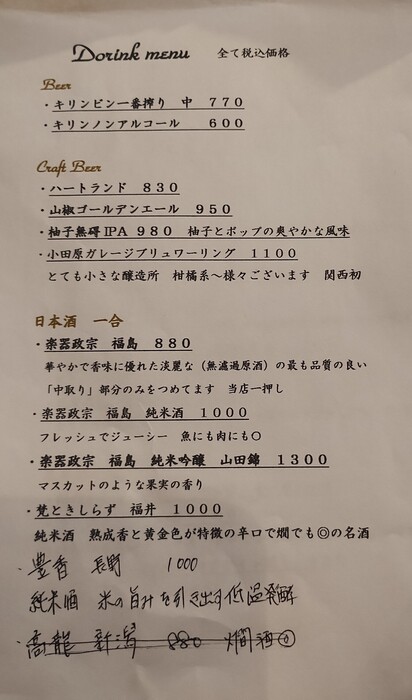 Dorink menu 全て税込価格
Beer
・キリンビン一番搾り 中 770
・キリンノンアルコール 600
Craft Beer
・ハートランド 830
・山椒ゴールデンエール 950
・柚子無碍IPA 980 柚子とポップの爽やかな風味
・小田原ガレージブリュワーリング 1100
とても小さな醸造所 柑橘系〜様々ございます 関西初
日本酒 一合
・楽器政宗 福島 880
華やかで香味に優れた淡麗な（無濾過原酒）の最も品質の良い
「中取り」部分のみをつめてます 当店一押し
・楽器政宗 福島 純米酒 1000
フレッシュでジューシー 魚にも肉にも〇
・楽器政宗 福島 純米吟醸 山田錦 1300
マスカットのような果実の香り
・梵ときしらず 福井 1000
純米酒 熟成香と黄金色が特徴の辛口で燗でも◎の名酒
・豊香 長野 1000
純米酒 米の旨みを引き出す低温発酵
・高龍 新潟 880 燗酒◎